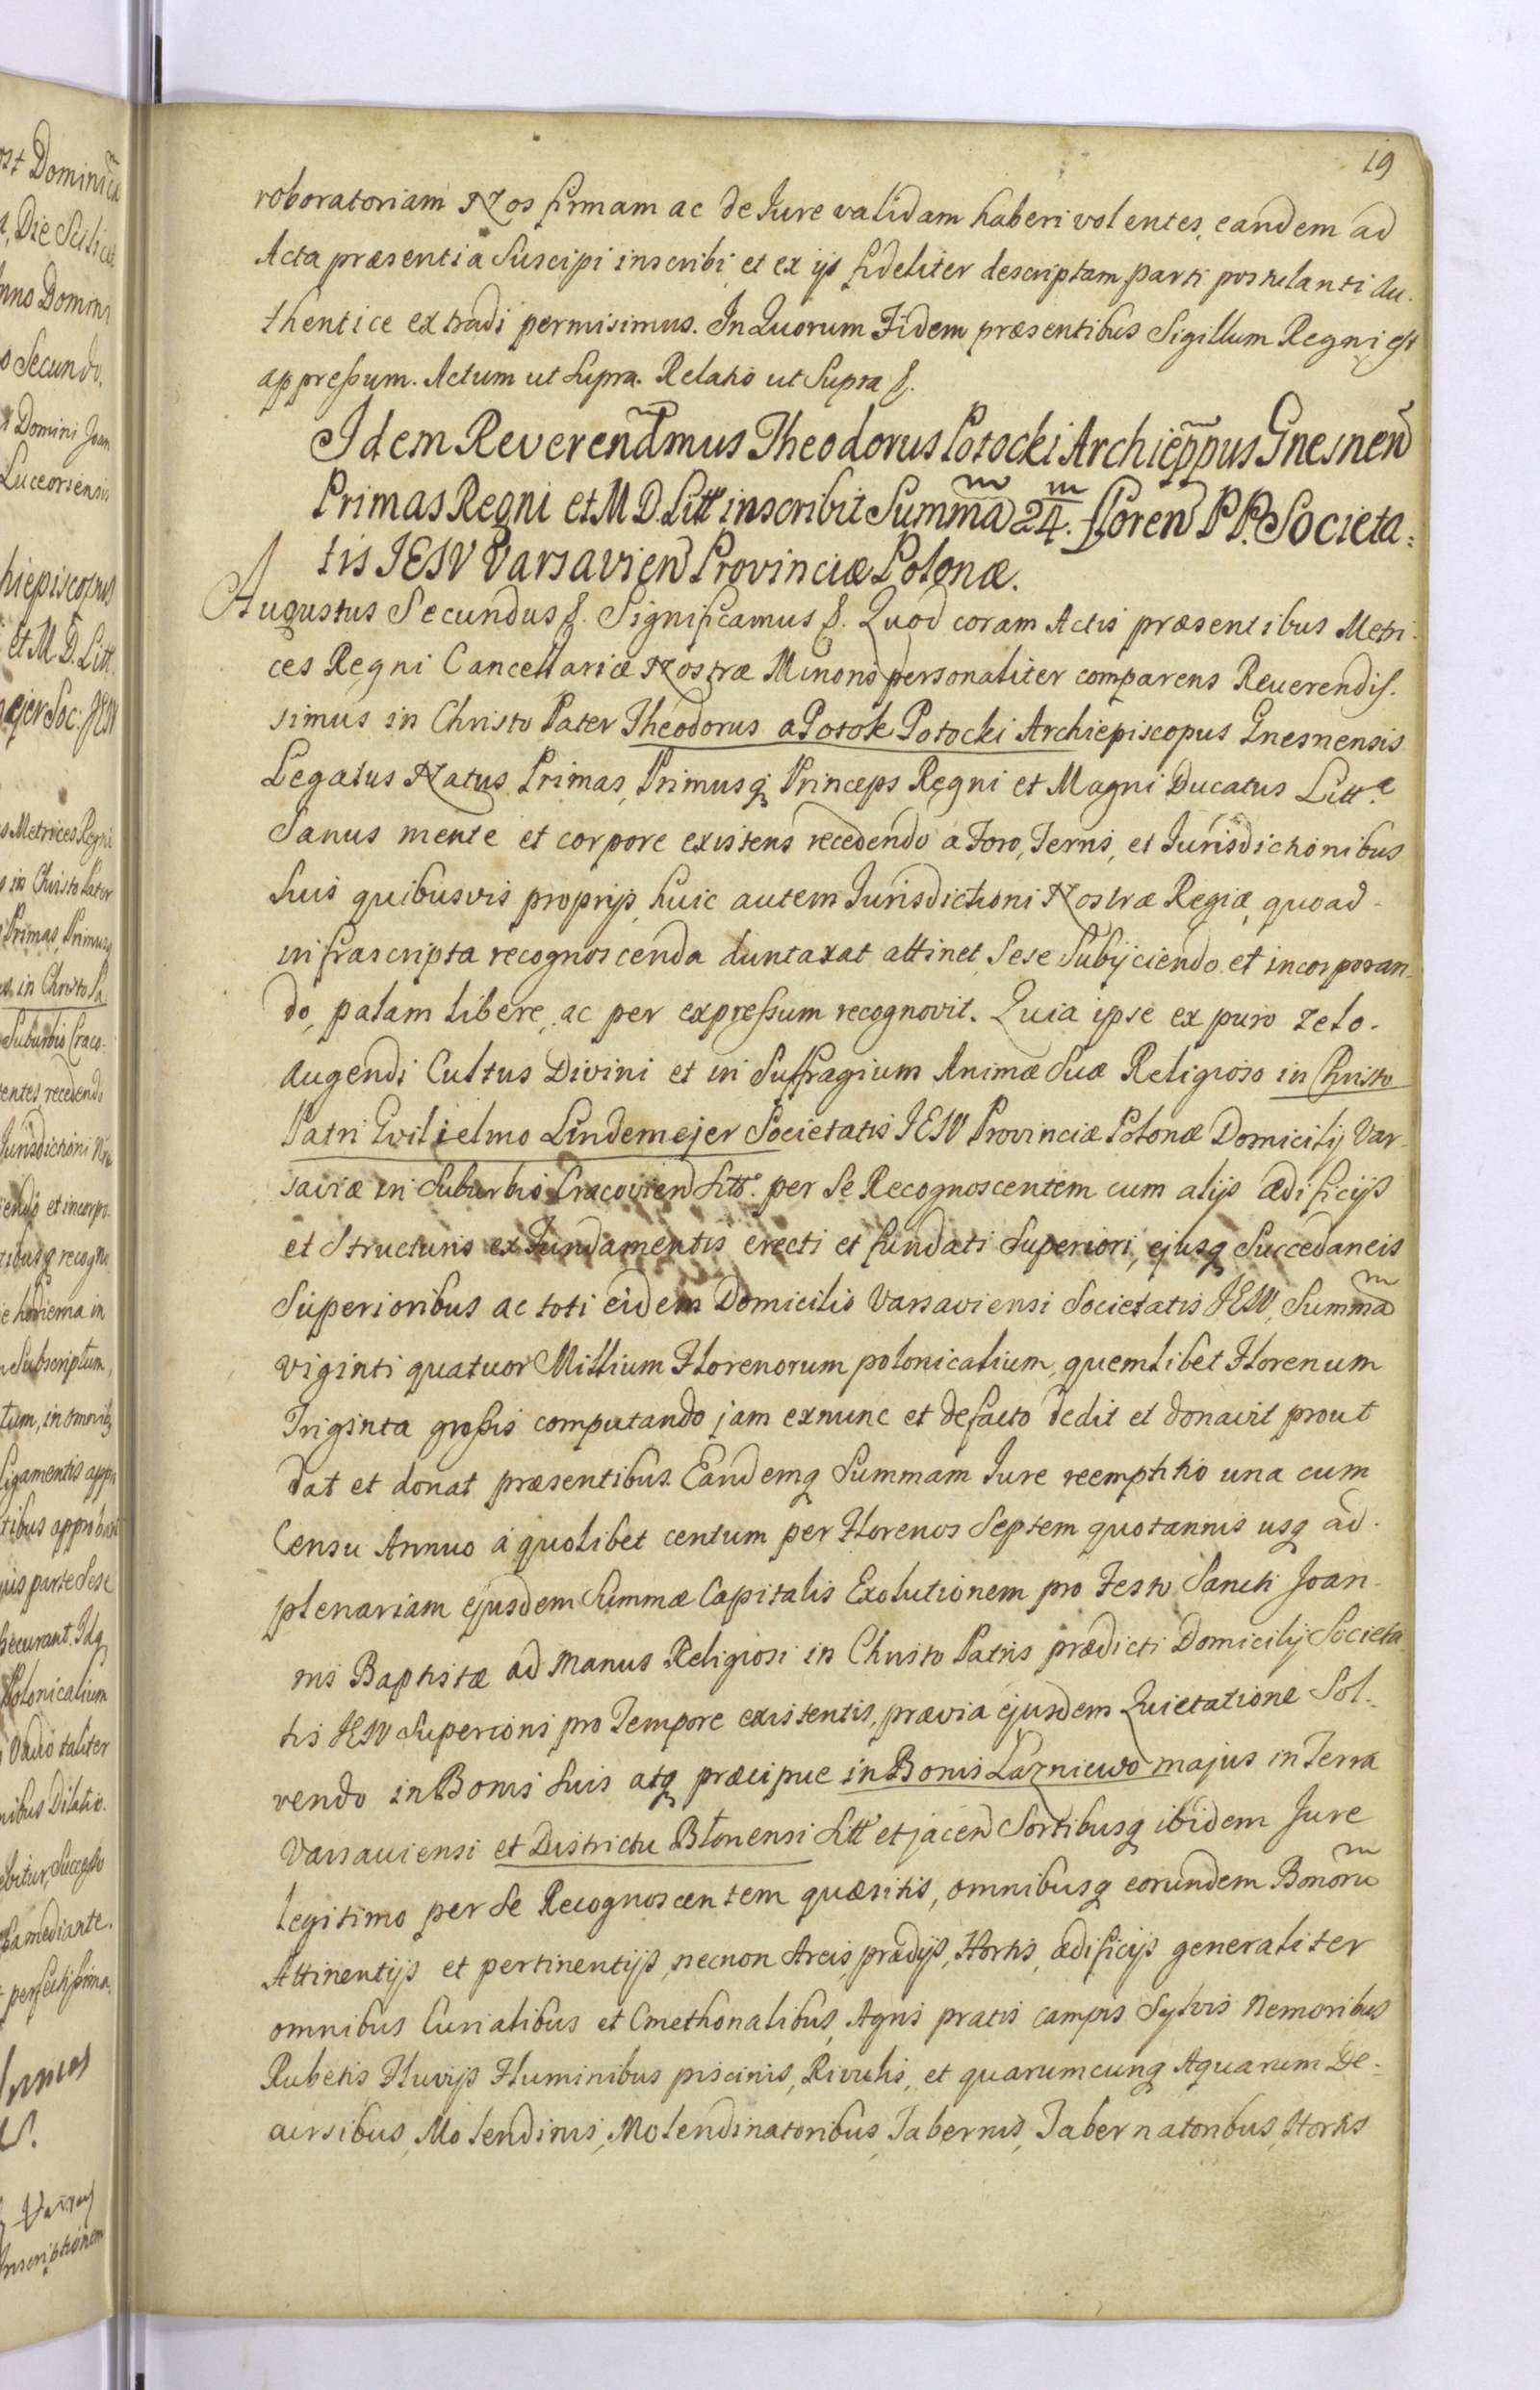 19
roboratoriam Nos firmam ac de Jure validam haberi volentes, eandem ad
Acta præsentia Suscipi inscribi et ex ijs fideliter descriptam parti postulanti Au-
thentice extradi permisimus. In Quorum Fidem præsentibus Sigillum Regni est
appressum. Actum ut Supra. Relatio ut Supra
Idem Reverendm̃us Theodorus Potocki Archiep̃pus Gnesnen
Primas Regni et M D. Litt inscribit Summã 24.m floren PP. Societa:
tis IESV Varsavien Provinciæ Polonæ.
Augustus Secundus Significamus Quod coram Actis præsentibus Metri-
ces Regni Cancellariæ Nostræ Minoris personaliter comparens Reuerendis-
simus in Christo Pater Theodorus a Potok Potocki Archiepiscopus Gnesnensis
Legatus Natus Primas, Primusq Princeps Regni et Magni Ducatus Litt.æ
Sanus mente et corpore existens recedendo a Foro, Terris, et Jurisdictionibus
Suis quibusvis proprijs huic autem Jurisdictioni Nostræ Regiæ, quoad-
infrascripta recognoscenda duntaxat attinet, Sese Subijciendo et incorporan-
do, palam libere, ac per expressum recognovit. Quia ipse ex puro zelo.
augendi Cultus Divini et in Suffragium Animæ Suæ Religioso in Christo
Patri Gvilielmo Lindemejer Societatis IESV Provinciæ Polonæ Domicilij Var-
saviæ in Suburbio Cracovien Litt. per Se Recognoscentem cum alijs ædificijs
et Structuris ex Fundamentis erecti et fundati Superiori, ejusq Succedaneis
Superioribus ac toti eidem Domicilio Varsaviensi Societatis IESV, Summã
viginti quatuor Millium Florenorum polonicalium, quemlibet Florenum
Triginta grossis computando jam exnunc et defacto dedit et donavit prout
dat et donat præsentibus. Eandemq Summam Jure reemptitio una cum
Censu Annuo á quolibet centum per Florenos Septem quotannis usq ad.
plenariam ejusdem Summæ Capitalis Exolutionem pro Festo Sancti Joan-
nis Baptistæ ad manus Religiosi in Christo Patris prædicti Domicilij Societa
tis IESV Superioris pro Tempore existentis, prævia ejusdem Quietatione Sol-
vendo in Bonis Suis atq præcipue in Bonis Łazniewo majus in Terra
Varsauiensi et Districtu Błonensi Litt et jacen Sortibusq ibidem Jure
legitimo per Se Recognoscentem quæsitis, omnibusq eorundem Bonorũ
Attinentijs et pertinentijs, necnon Areis, prædijs, Hortis, ædificijs generaliter
omnibus Curialibus et Cmethonalibus, Agris pratis campis Sylvis Nemoribus
Rubetis Fluvijs Fluminibus piscinis, Rivulis, et quarumcunq Aquarum De-
cursibus, Molendinis, Molendinatoribus, Tabernis, Tabernatoribus, Hortis